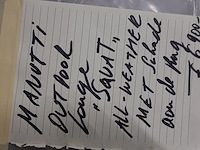 MANUTTI
OUTDOOR
Lounge
"SQUAT"
ALL-WEATHER
MET Schade
aan de Rug